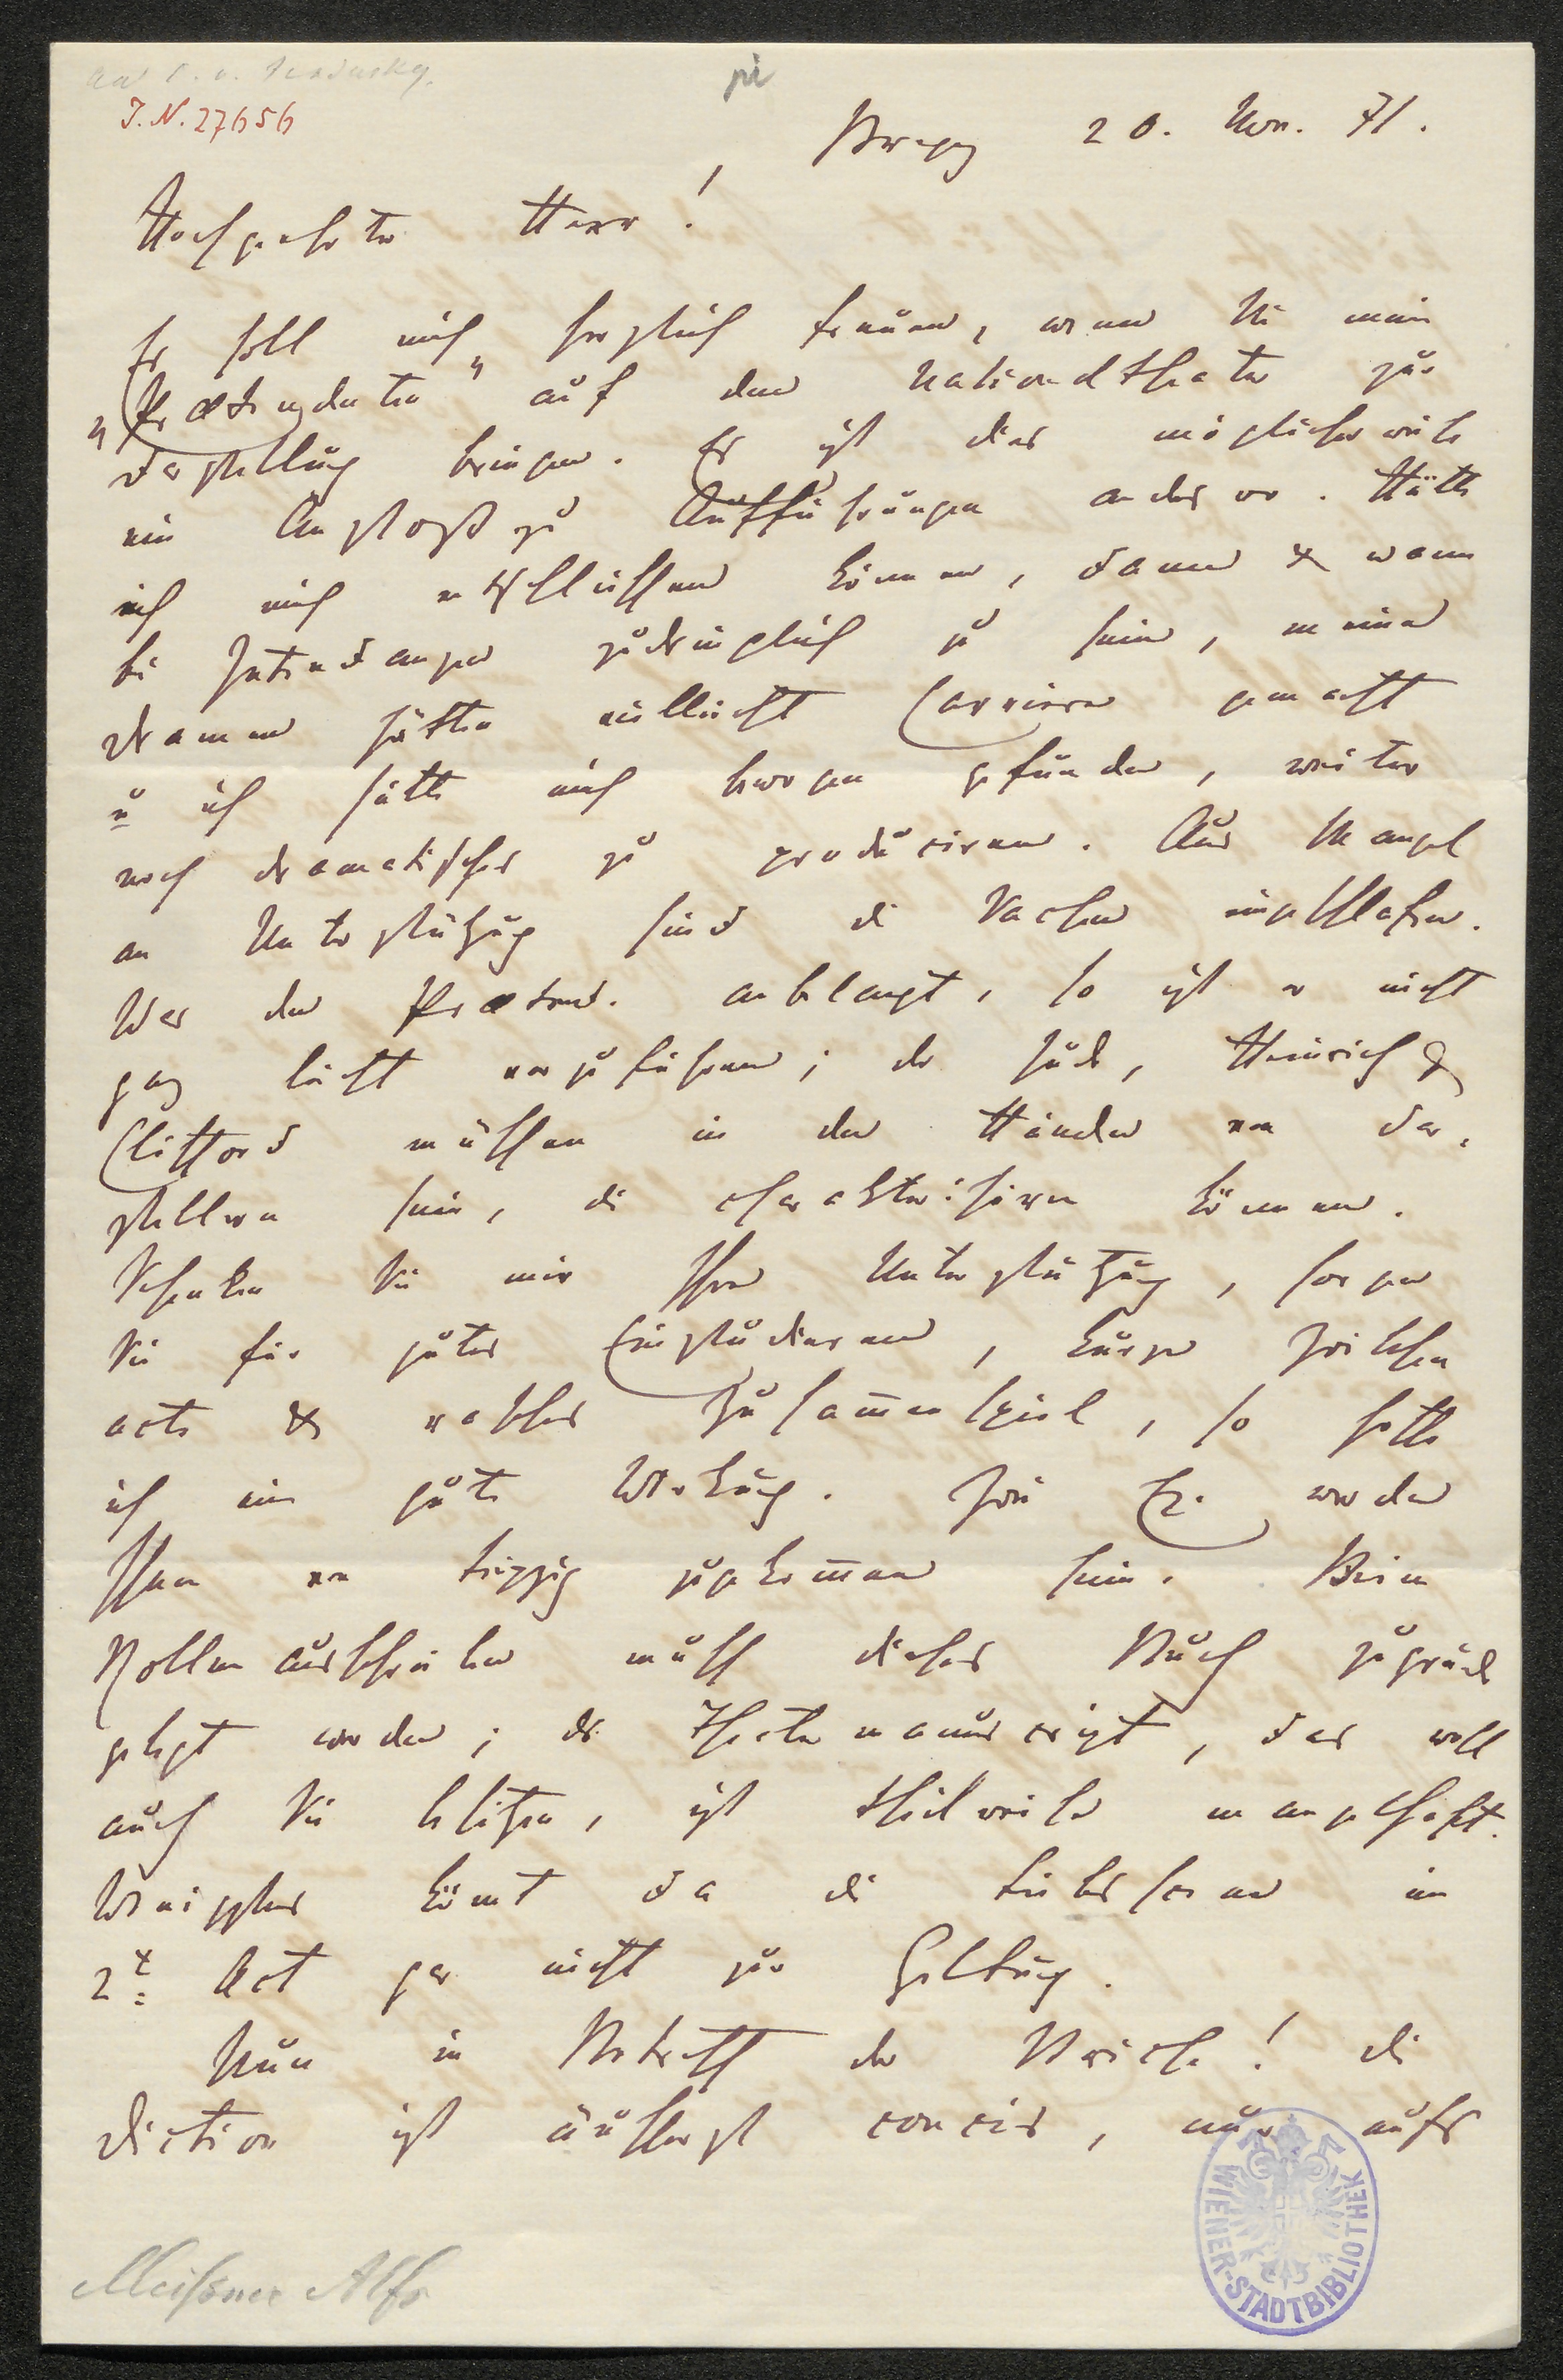 J.N. 27656
Bregenz 20. Nov. 71.
Hochgeehrter Herr!
Es soll mich herzlich freuen, wenn Sie meinen
„Prätendenten" auf dem Nationaltheater zur
Darstellung bringen. Es ist dies möglicherweise
ein Anstoß zu Aufführungen anderswo. Hätte
ich mich entschließen können, dann & wann
bei Intendanzen zudringlich zu sein, meine
Dramen hätten vielleicht Carriere gemacht
u ich hätte mich bewogen gefunden, weiter
noch dramatisches zu produciren. Aus Mangel
an Unterstützung sind die Sachen eingeschlafen.
Was den Prätend. anbelangt, so ist er nicht
ganz leicht vorzuführen; der Jude, Heinrich &
Clifford müssen in den Händen von Dar-
stellern sein, die charakterisiren können.
Schenken Sie mir Ihre Unterstützung, sorgen
Sie für gutes Einstudieren, kurze Zwischen
acte & rasches Zusam̅enspiel, so hoffe
ich eine gute Wirkung. Zwei Ex. werden
Ihnen von Leipzig zugekom̅en sein. Beim
Rollenausschreiben muß dieses Buch zugrunde
gelegt werden; das Theatermanuscript, das wohl
auch Sie besitzen, ist theilweise mangelhaft.
Wenigstens kömt da die Liebesscene im
2t Act gar nicht zur Geltung.
Nun in Betreff der Striche! Die
Diction ist äußerst concis, nur aufs
Meißner Alfr
WIENER-STADTBIBLIOTHEK